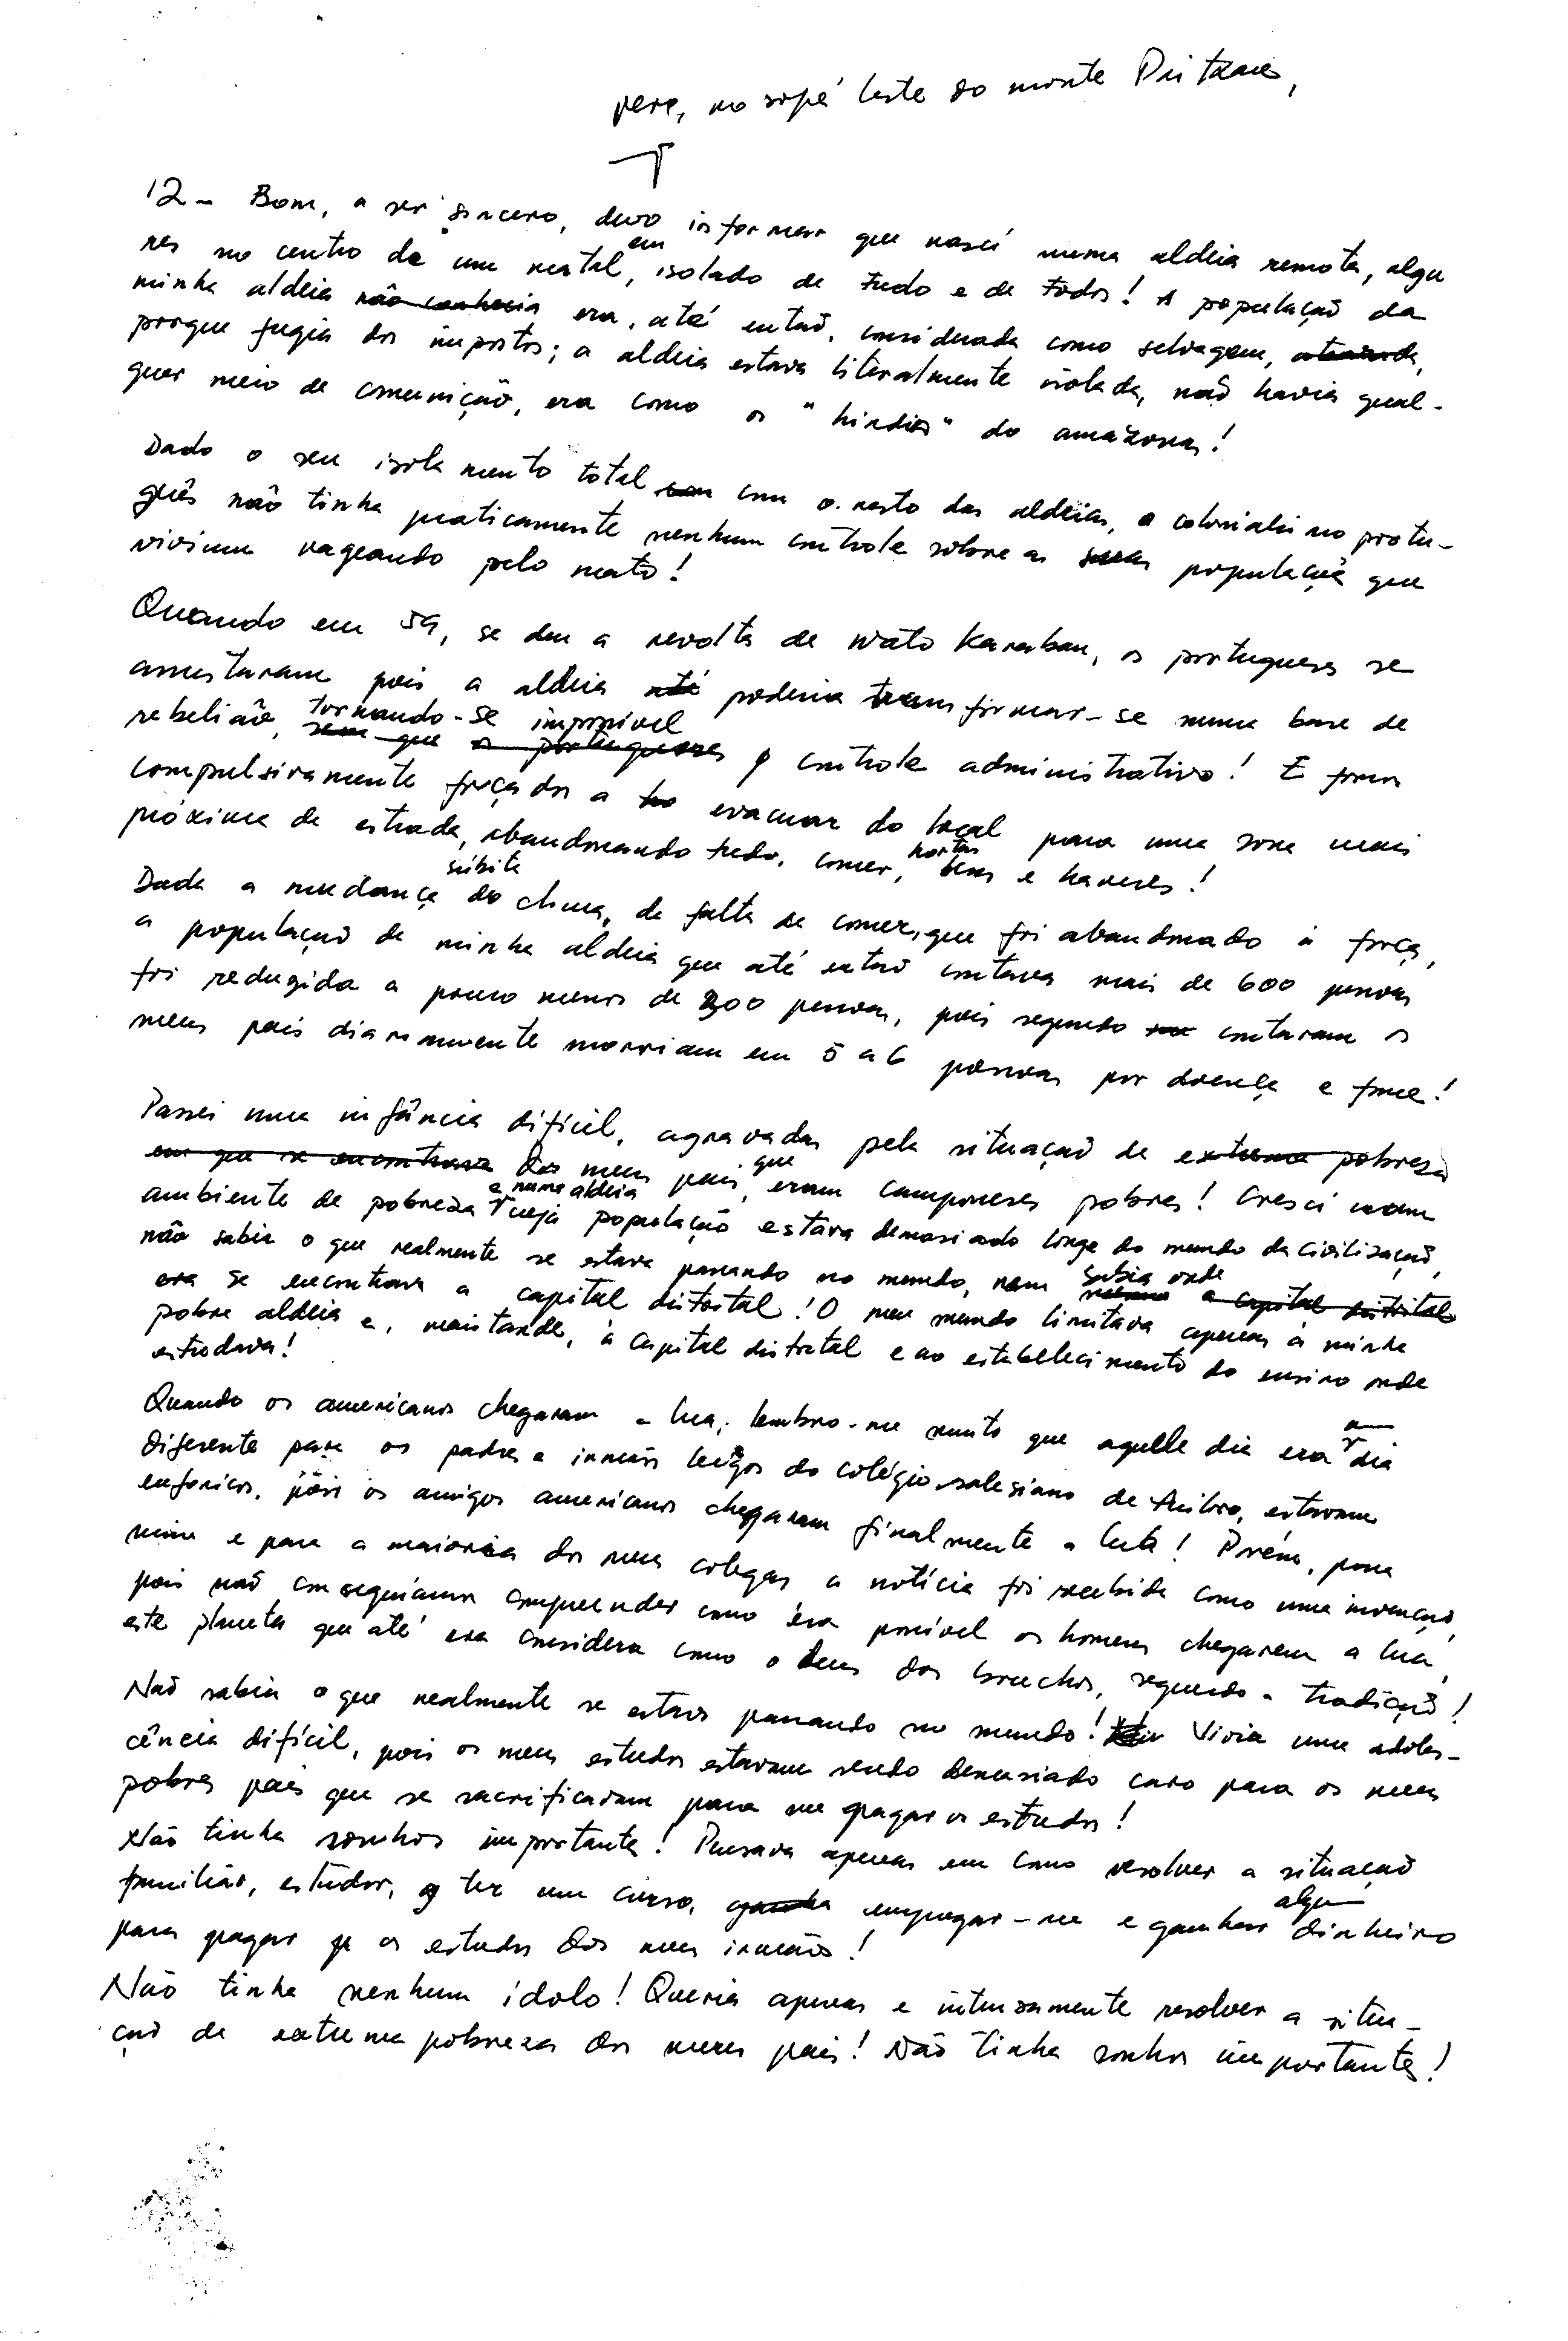 pere, no sopé leste do monte
12 - Bom, a ser sincero, devo informar que nasci numa aldeia remota, algu
res no centro de um matal, em isolado de tudo e de todos! A população da
minha aldeia não conhecia era, até então, considerada como selvagem, atrasada,
porque fugia dos impostos; a aldeia estava literalmente isolada, não havia qual-
quer meio de comunição, era como os "hindios" do amazonas!
Dado o seu isolamento total com com o resto das aldeias, o colonialismo portu-
guês não tinha praticamente nenhum controle sobre as suas população que
viviam vageando pelo mato!
Quando em 59, se deu a revolta de Wato Karabau, os portugueses se
assustaram pois a aldeia até poderia transformar-se numa base de
rebelião, tornando-se impossível
sem que os portugueses o controle administrativo! E foram
compulsivamente forçados a evacuar do local para uma zona mais
próxima de estrada, abandonando tudo, comer, hortas bens e haveres!
Dada a mudança súbita do clima, de falta de comer, que foi abandonado à força,
a população de minha aldeia que até então contava mais de 600 pessoas
foi redugida a pouco menos de 300 pessoas, pois segundo contaram os
meus pais diariamente morriam em 5 a 6 pessoas por doença e fome!
Passei uma infância difícil, agravadas pela situação de extrema pobreza
em que se encontrava dos meus pais, que eram camponeses pobres! Cresci num
ambiente de pobreza e numa aldeia cuja população estava demasiado longe do mundo da civilização,
não sabia o que realmente se estava passando no mundo, nem sabia onde a capital distrital
era se encontrava a capital distrital! O meu mundo limitava apenas à minha
pobre aldeia e, mais tarde, à capital distrital e ao estabelecimento do ensino onde
estudava!
Quando os americanos chegaram a lua, lembro-me muito que aquele dia era um dia
diferente para os padres e irmãos leigos do colégio salesiano de Fuiloro, estavam
eufóricos, pois os amigos americanos chegaram finalmente a lua! Porém, para
mim e para a maioria dos meus colegas a notícia foi recebida como uma invenção,
pois não conseguiamos compreender como era possível os homens chegarem a lua,
este planeta que até era considera como o deus dos bruchos, segundo a tradição!
Não sabia o que realmente se estava passando no mundo! Vivia uma adoles-
cência difícil, pois os meus estudos estavam sendo demasiado caro para os meus
pobres pais que se sacrificavam para me pagar os estudos!
Não tinha sonhos importante! Pensava apenas em como resolver a situação
familiar, estudar, ter um curso, ganha empregar-me e ganhar algum dinheiro
para pagar os estudos dos meus irmãos!
Não tinha nenhum ídolo! Queria apenas e intensamente resolver a situa-
ção de extrema pobreza dos meus pais! Não tinha sonhos importantes!